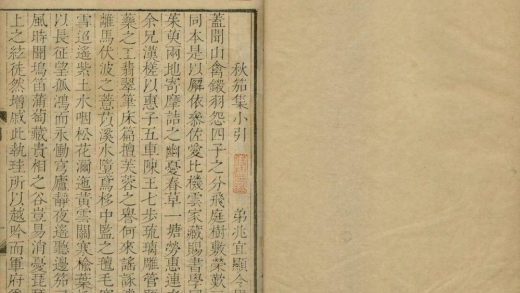 秋笳集小引
弟兆宜顯令
蓋聞山禽鎩羽怨四子之分飛庭樹敷榮歎三
同本是以屛依叅佐愛比機雲家藏賜書學同
茱萸兩地寄摩詰之幽憂春草一塘勞惠連之
余兄漢槎以惠子五車陳王七步琉璃雕管
藥之工翡翠筆床篇擅芙蓉之譽何來謠諑
離馬伏波之薏苡溪水墮鳶移中監之氊毛
雪迢遙紫土水咽松花瀰迤黃雲關寒榆葉
以長征望孤鴻而永慟穹廬靜夜遙聽邊笳
風時聞瑪笛葡萄藏貴相之谷豈易消憂琵
上之絃徒然增戚此執珪所以越吟而軍府